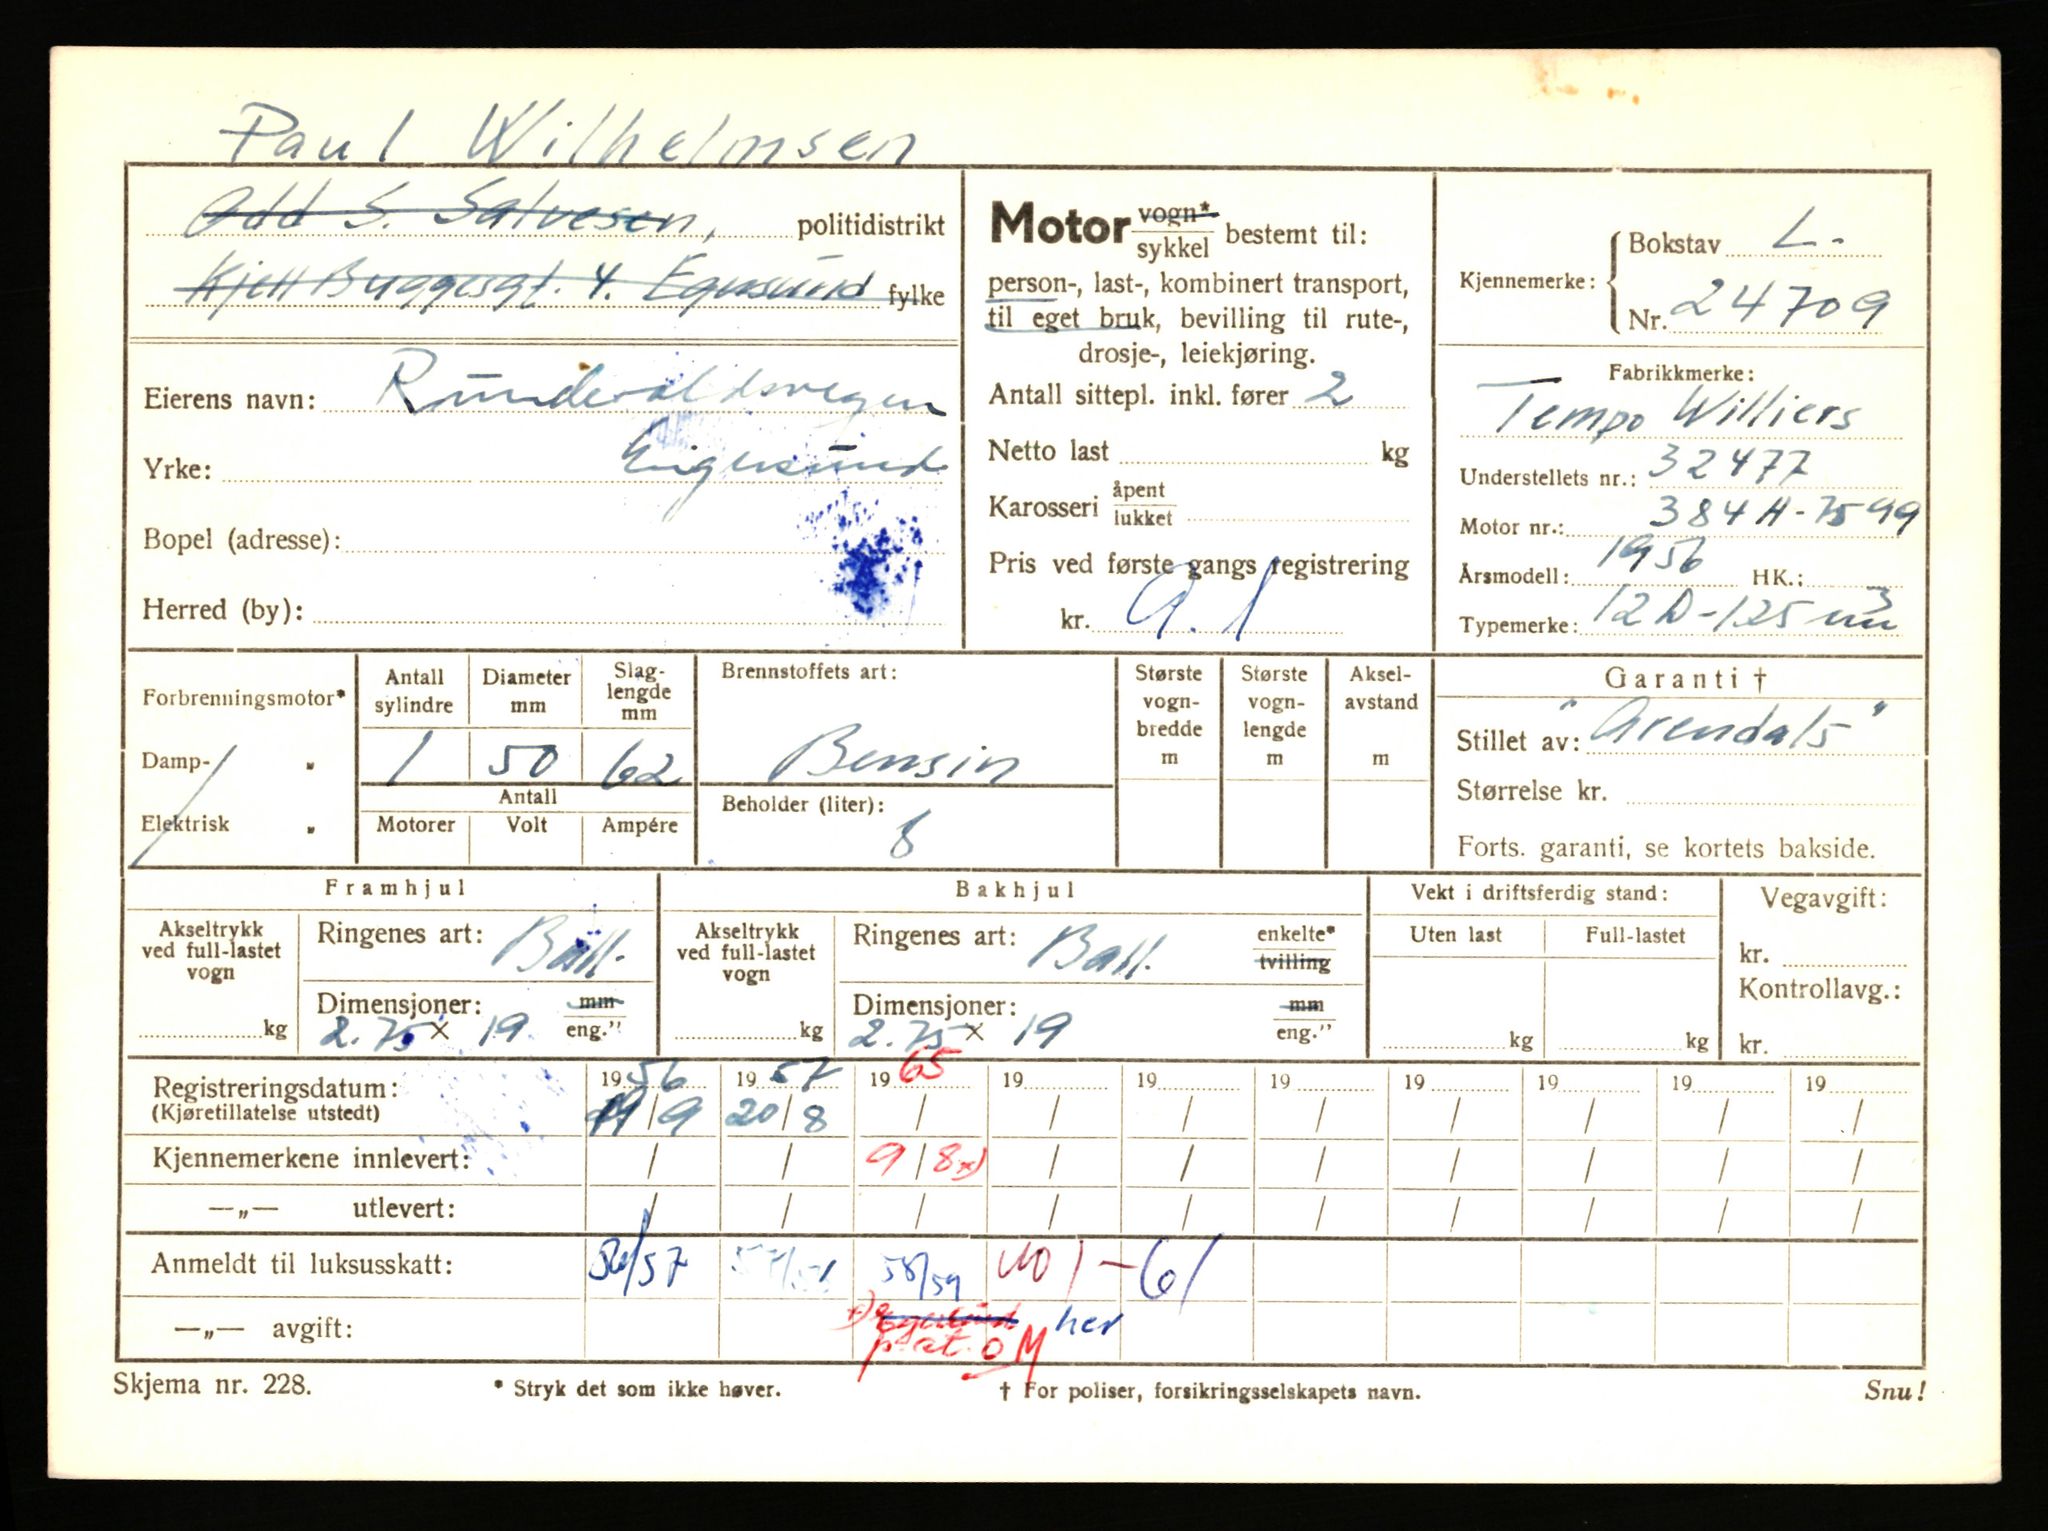 Paul Wilhelmsen
Odd S. Salvesen, politidistrikt
Kjell Buggesgt. 4. Egersund fylke
Eierens navn: Runde
Yrke: Eigersund
Bopel (adresse):
Herred (by):
Motor vogn* sykkel bestemt til:
person-, last-, kombinert transport,
til eget bruk, bevilling til rute-,
drosje-, leiekjøring.
Antall sittepl. inkl. fører 2
Netto last kg
Karosseri åpent lukket
Pris ved første gangs registrering
kr.
Kjennemerke: Bokstav L.
Nr. 24709
Fabrikkmerke:
Tempo Williers
Understellets nr.: 32477
Motor nr.: 384H-7599
Årsmodell: 1956 HK.:
Typemerke: 12D-125
Forbrenningsmotor*
Damp- "
Elektrisk "
Antall sylindre
Diameter mm
Slag-lengde mm
1 50 62
Antall
Motorer Volt Ampére
Brennstoffets art:
Bensin
Beholder (liter):
8
Største vogn-bredde m
Største vogn-lengde m
Aksel-avstand m
Garanti †
Stillet av: "Arendals"
Størrelse kr.
Forts. garanti, se kortets bakside.
Framhjul
Akseltrykk ved full-lastet vogn
kg
Ringenes art: Ball.
Dimensjoner: mm
2.75 x 19 eng."
Bakhjul
Akseltrykk ved full-lastet vogn
kg
Ringenes art: Ball. enkelte* tvilling
Dimensjoner: mm
2.75 x 19 eng."
Vekt i driftsferdig stand:
Uten last Full-lastet
kg kg
Vegavgift:
kr.
Kontrollavg.:
kr.
Registreringsdatum: 1956 1957 1965 19 19 19 19 19 19 19
(Kjøretillatelse utstedt) /9 20/8 / / / / / / / /
Kjennemerkene innlevert: / / 9/8x) / / / / / / /
—„— utlevert: / / / / / / / / / /
Anmeldt til luksusskatt: 56/57 57/58 58/59 60/-61
—„— avgift: x) Egersund her
Skjema nr. 228.
* Stryk det som ikke høver.
† For poliser, forsikringsselskapets navn.
Snu!